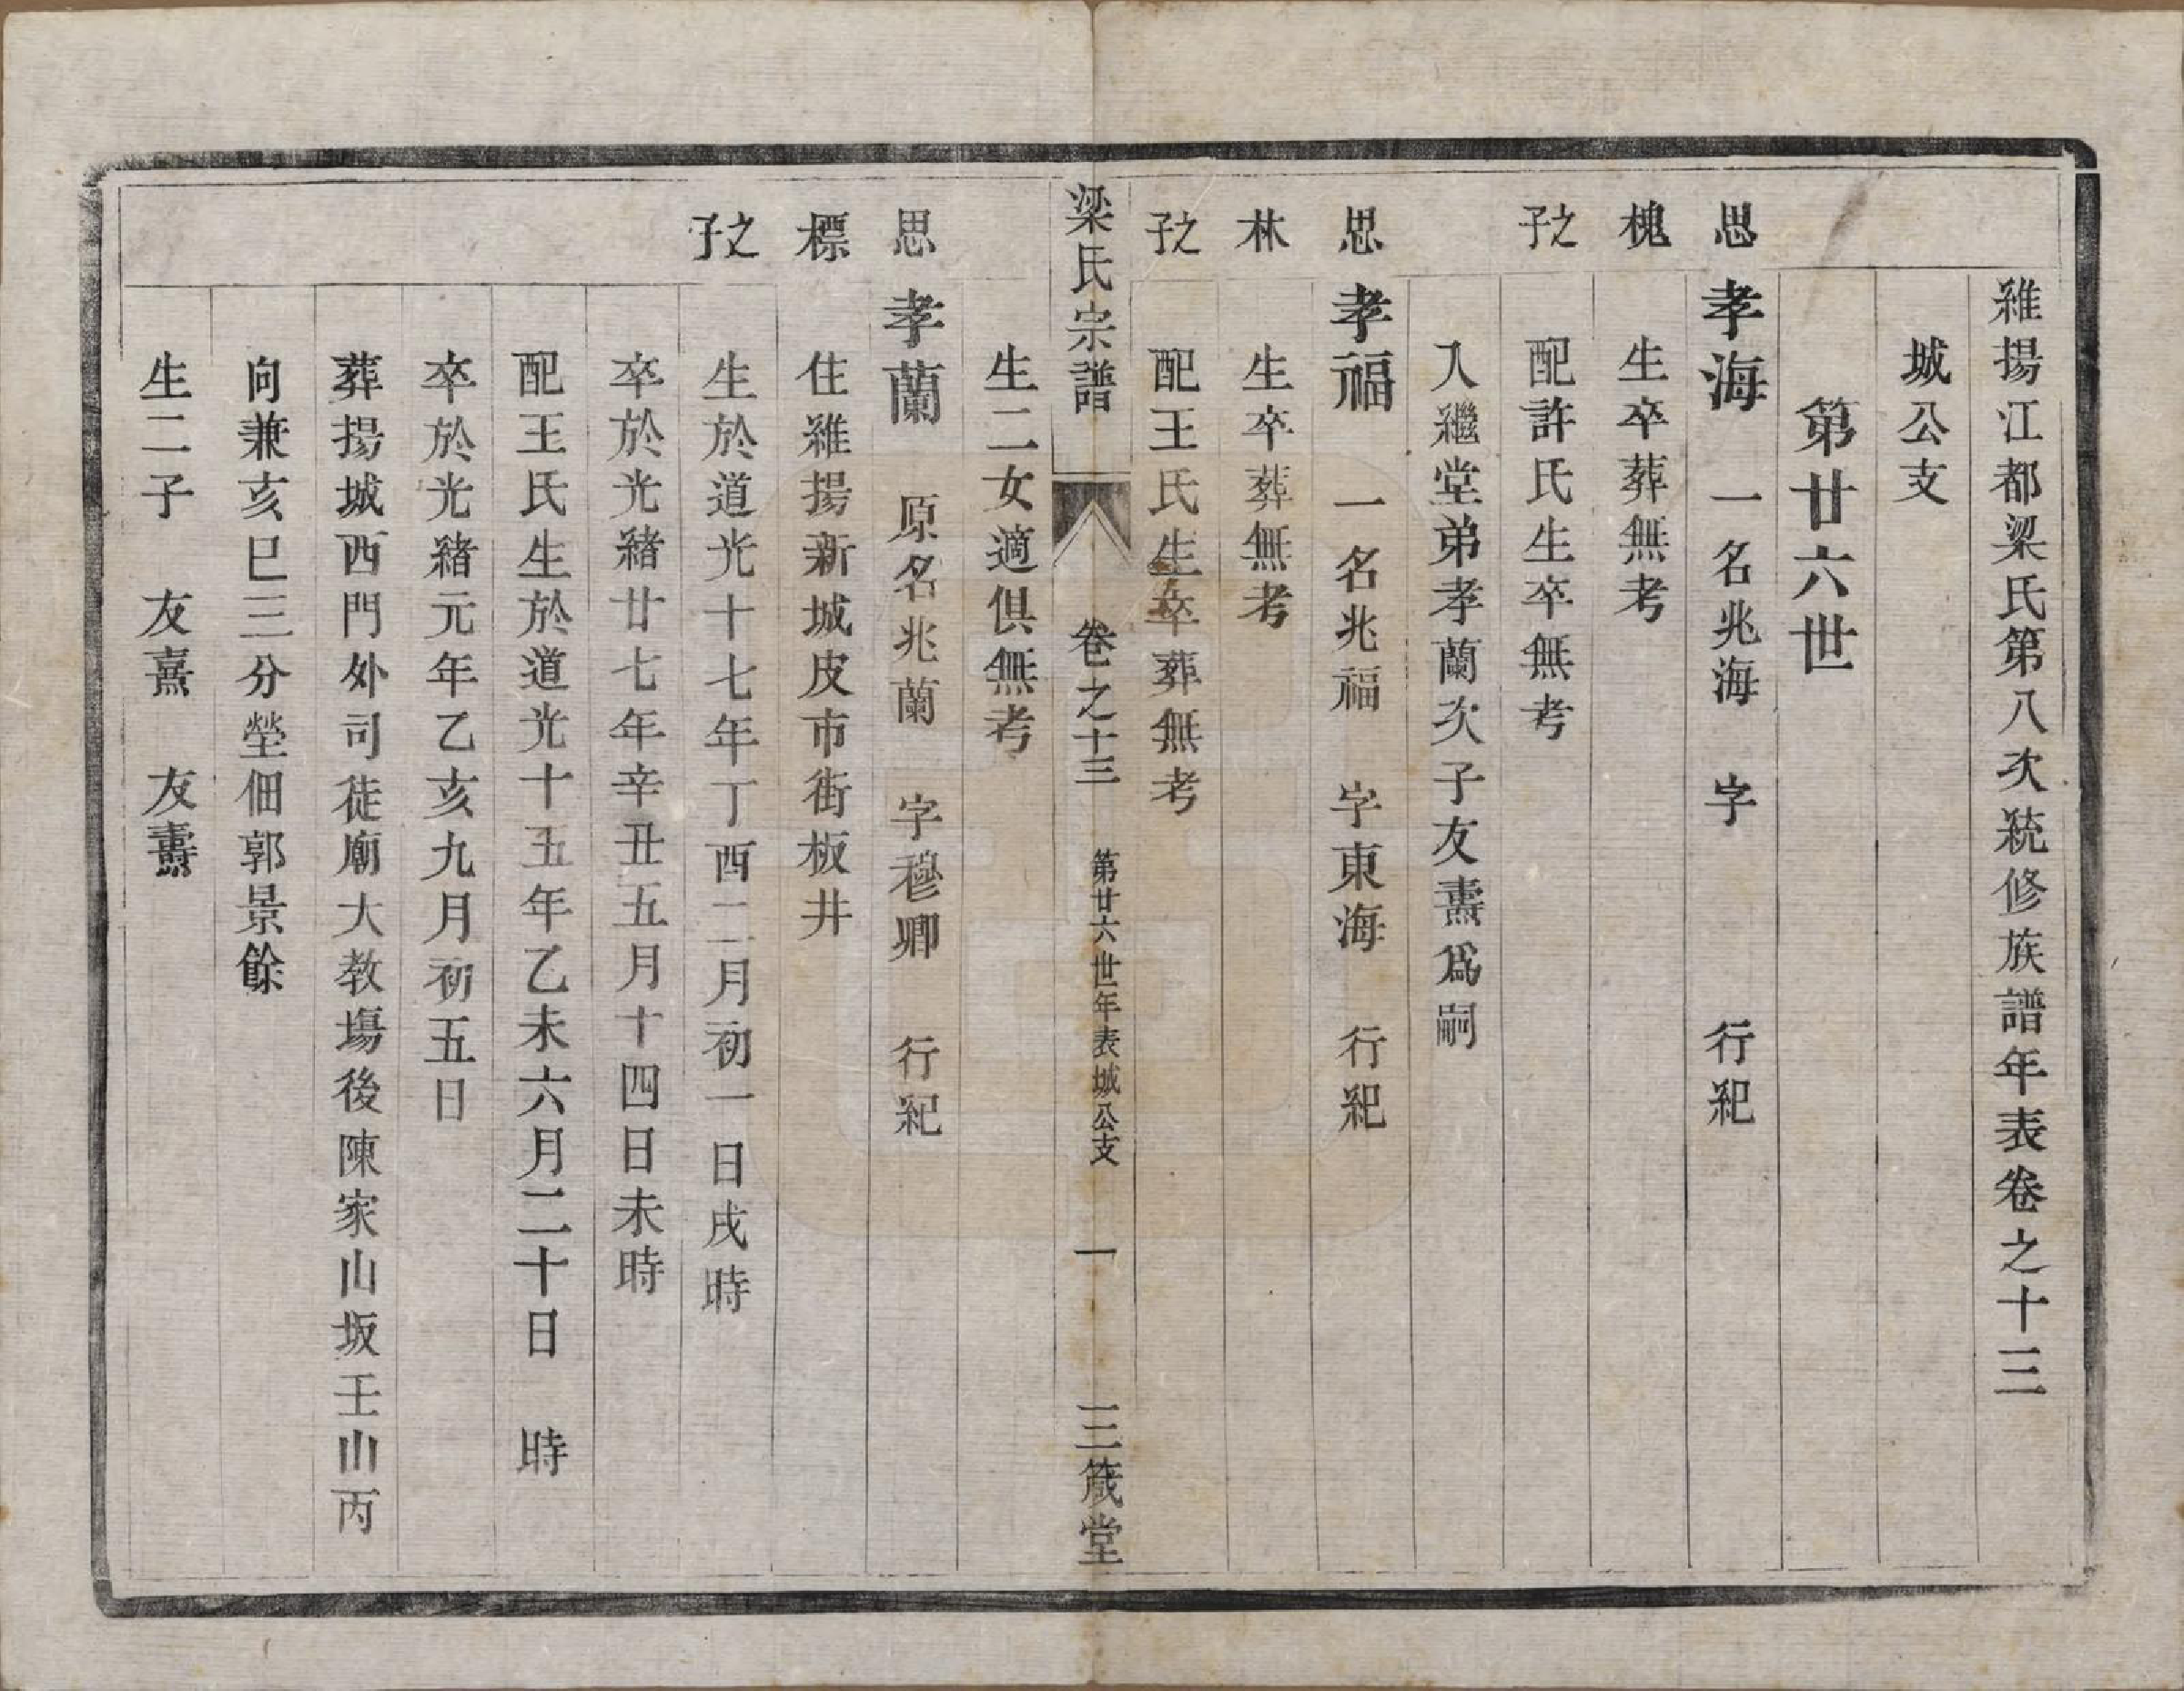 維揚江都梁氏第八次統修族譜年表卷之十三
城公支
第廿六世
思 孝海 一名兆海 字 行紀
槐 生卒葬無考
之子 配許氏生卒無考
入繼堂弟孝蘭次子友燾爲嗣
思 孝福 一名兆福 字東海 行紀
林 生卒葬無考
之子 配王氏生卒葬無考
梁氏宗譜 卷之十三 第廿六世年表城公支 一 三箴堂
生二女適俱無考
思 孝蘭 原名兆蘭 字穆卿 行紀
標 住維揚新城皮市街板井
之子 生於道光十七年丁酉二月初一日戌時
卒於光緒廿七年辛丑五月十四日未時
配王氏生於道光十五年乙未六月二十日 時
卒於光緒元年乙亥九月初五日
葬揚城西門外司徒廟大教場後陳家山坂壬山丙
向兼亥巳三分塋佃郭景餘
生二子 友熹 友燾